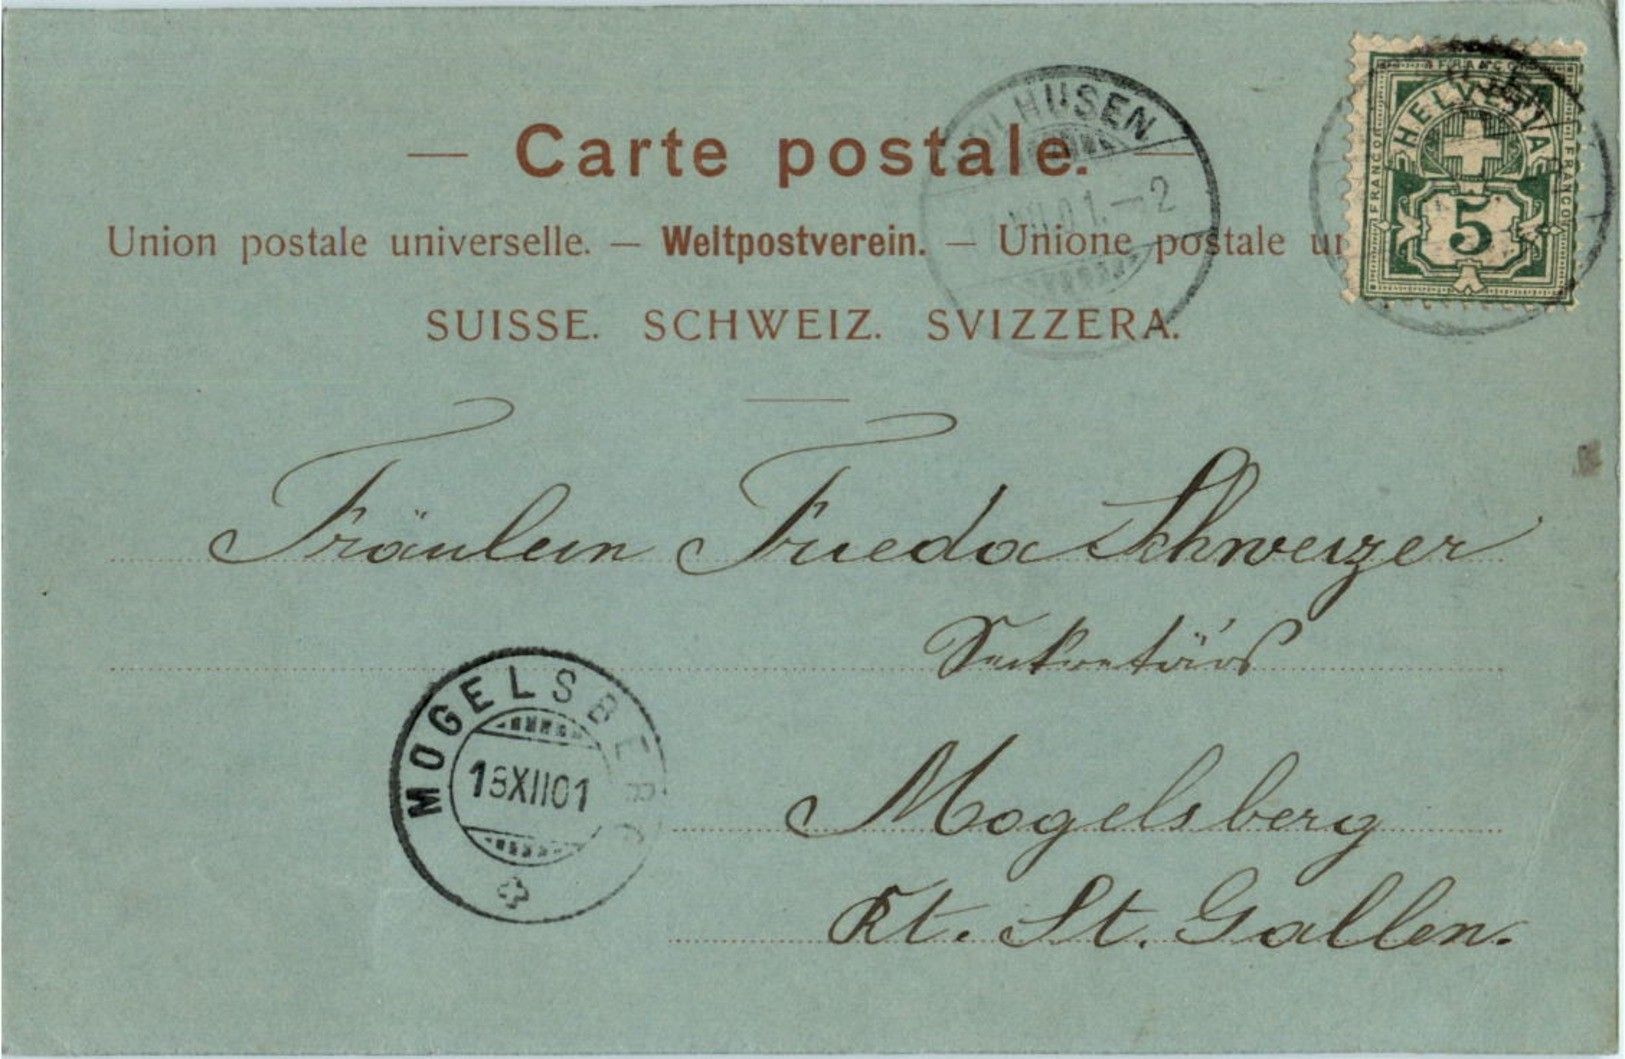 — Carte postale. —
Union postale universelle. — Weltpostverein. — Unione postale
SUISSE. SCHWEIZ. SVIZZERA.
HUSEN
01.–2
FRANCO
HELVETIA
FRANCO
FRANCO
5
Fräulein Frieda Schweizer
Sekretärs
MOGELSBERG
18XII01
Mogelsberg
Kt. St. Gallen.